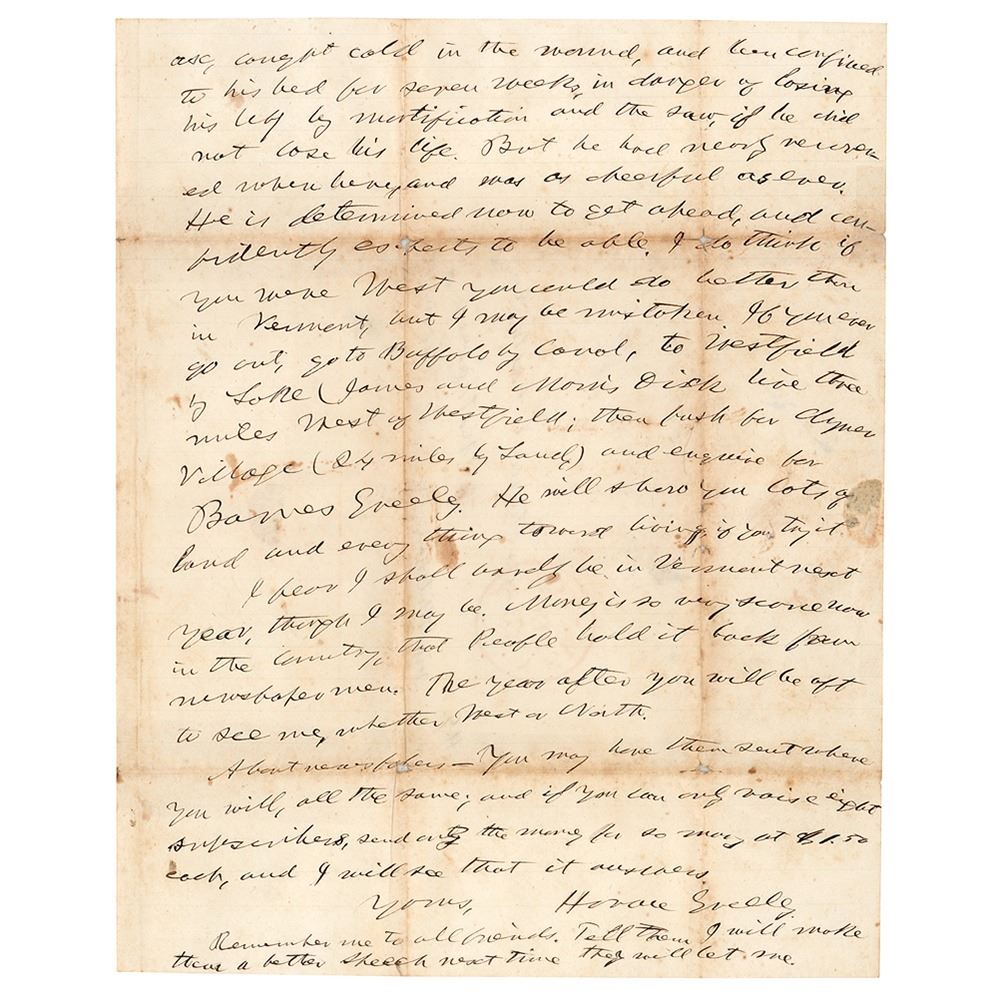 axe, caught cold in the wound, and been confined
to his bed for seven weeks, in danger of losing
his leg by mortification and the saw, if he did
not lose his life. But he had nearly recover-
ed when here, and was as cheerful as ever.
He is determined now to get ahead, and con-
fidently expects to be able. I do think if
you were West you could do better than
in Vermont, but I may be mistaken. If you ever
go out, go to Buffalo by Canal, to Westfield
by Lake (James and Morris Dick live three
miles West of Westfield; then push for Clymer
Village (24 miles by Land) and enquire for
Barnes Greeley. He will show you lots of
land and every thing toward living, if you try it.
I fear I shall hardly be in Vermont next
year, though I may be. Money is so very scarce now
in the Country, that People hold it back from
newspaper men. The year after you will be apt
to see me, whether West or North.
About newspapers — You may have them sent where
you will, all the same; and if you can only raise eight
subscribers, send only the money for so many at $1.50
each, and I will see that it answers.
Yours, Horace Greeley.
Remember me to all friends. Tell them I will make
them a better speech next time they will let me.